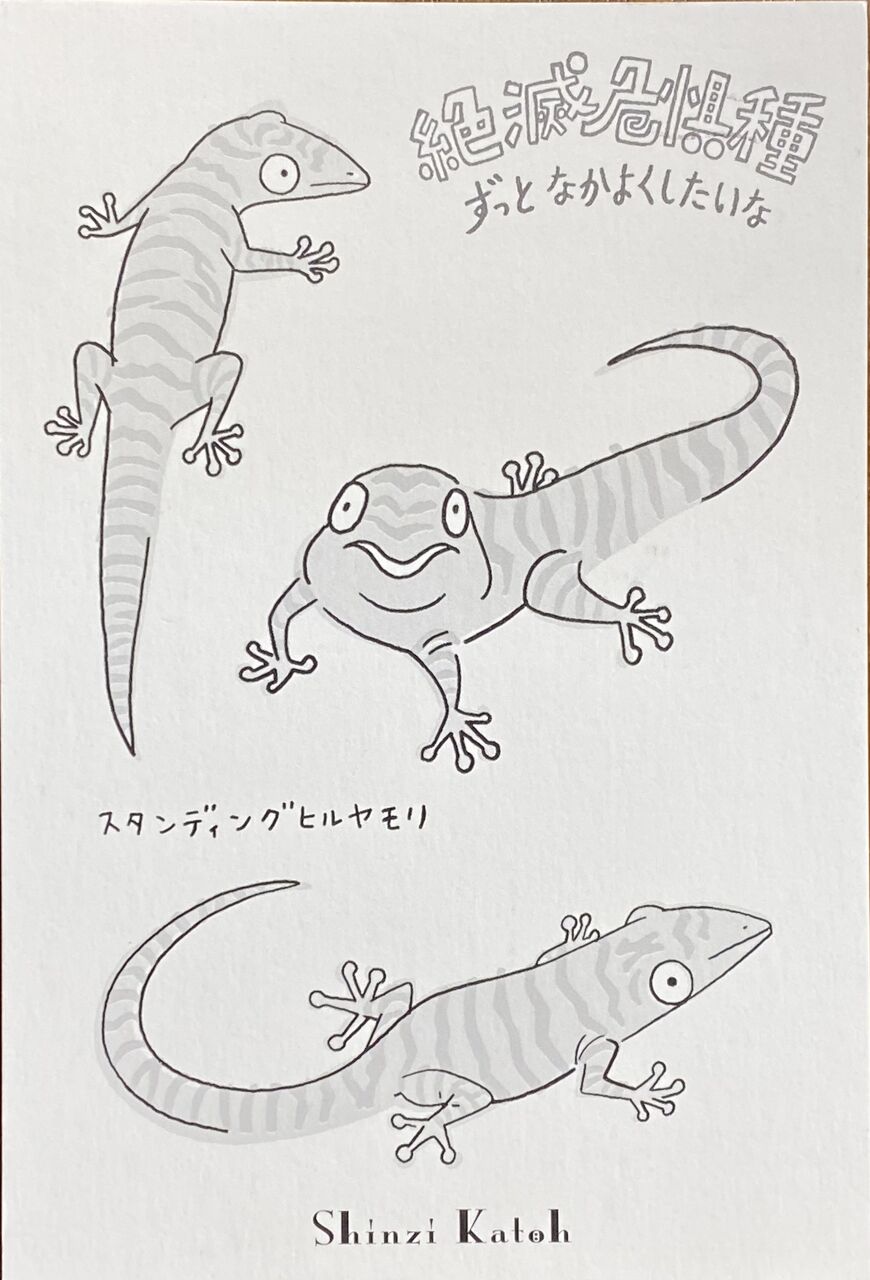 絶滅危惧種
ずっとなかよくしたいな
スタンディングヒルヤモリ
Shinzi Katoh